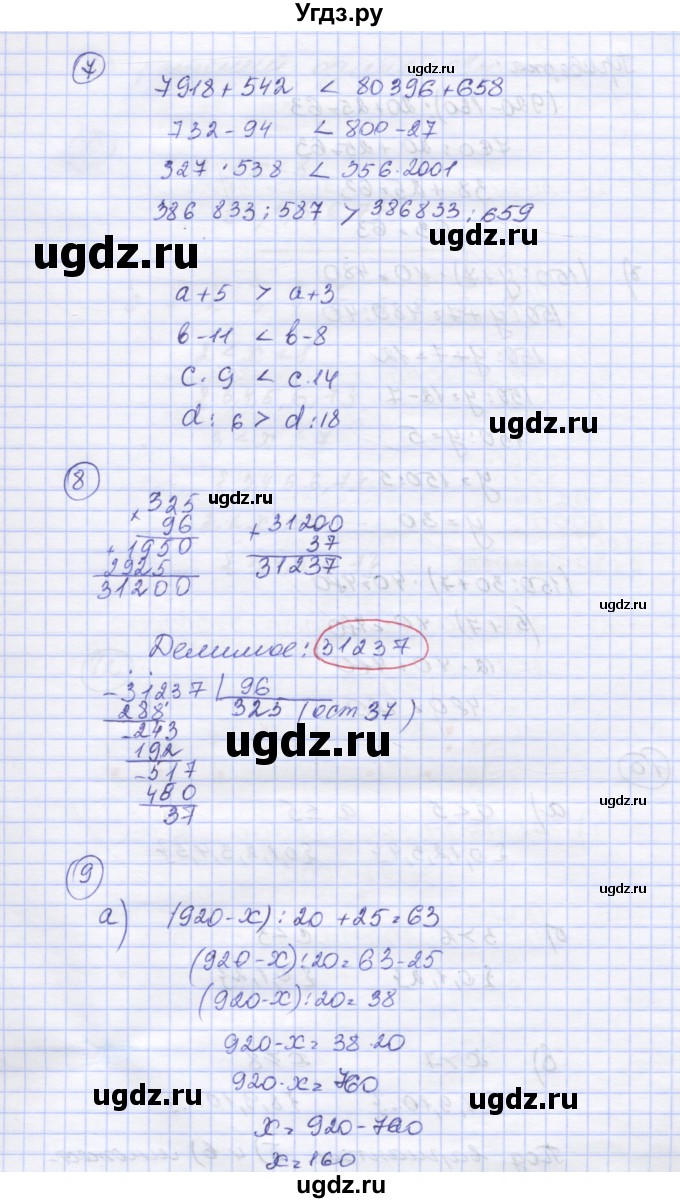 Угдз.ру
7
7918 + 542 < 80396 + 658
732 - 94 < 800 - 27
327 · 538 < 356 · 2001
386 833 : 587 > 386833 : 659
ugdz.ru
ugdz.ru
a + 5 > a + 3
b - 11 < b - 8
c · 9 < c · 14
d : 6 > d : 18
8
ugdz.ru
× 325
96
+ 1950
2925
31200
+ 31200
37
31237
ugdz.ru
Делимое: 31237
- 31237 | 96
288 325 (ост 37)
- 243
192
- 517
480
37
ugdz.ru
ugdz.ru
9
ugdz.ru
а) (920 - x) : 20 + 25 = 63
(920 - x) : 20 = 63 - 25
(920 - x) : 20 = 38
920 - x = 38 · 20
920 - x = 760
x = 920 - 760
x = 160
ugdz.ru
ugdz.ru